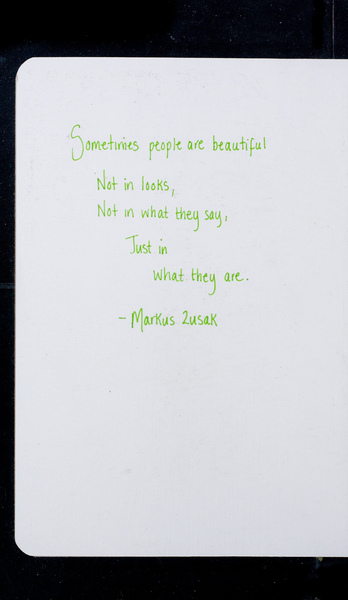 Sometimes people are beautiful
Not in looks,
Not in what they say,
Just in
what they are.
- Markus Zusak